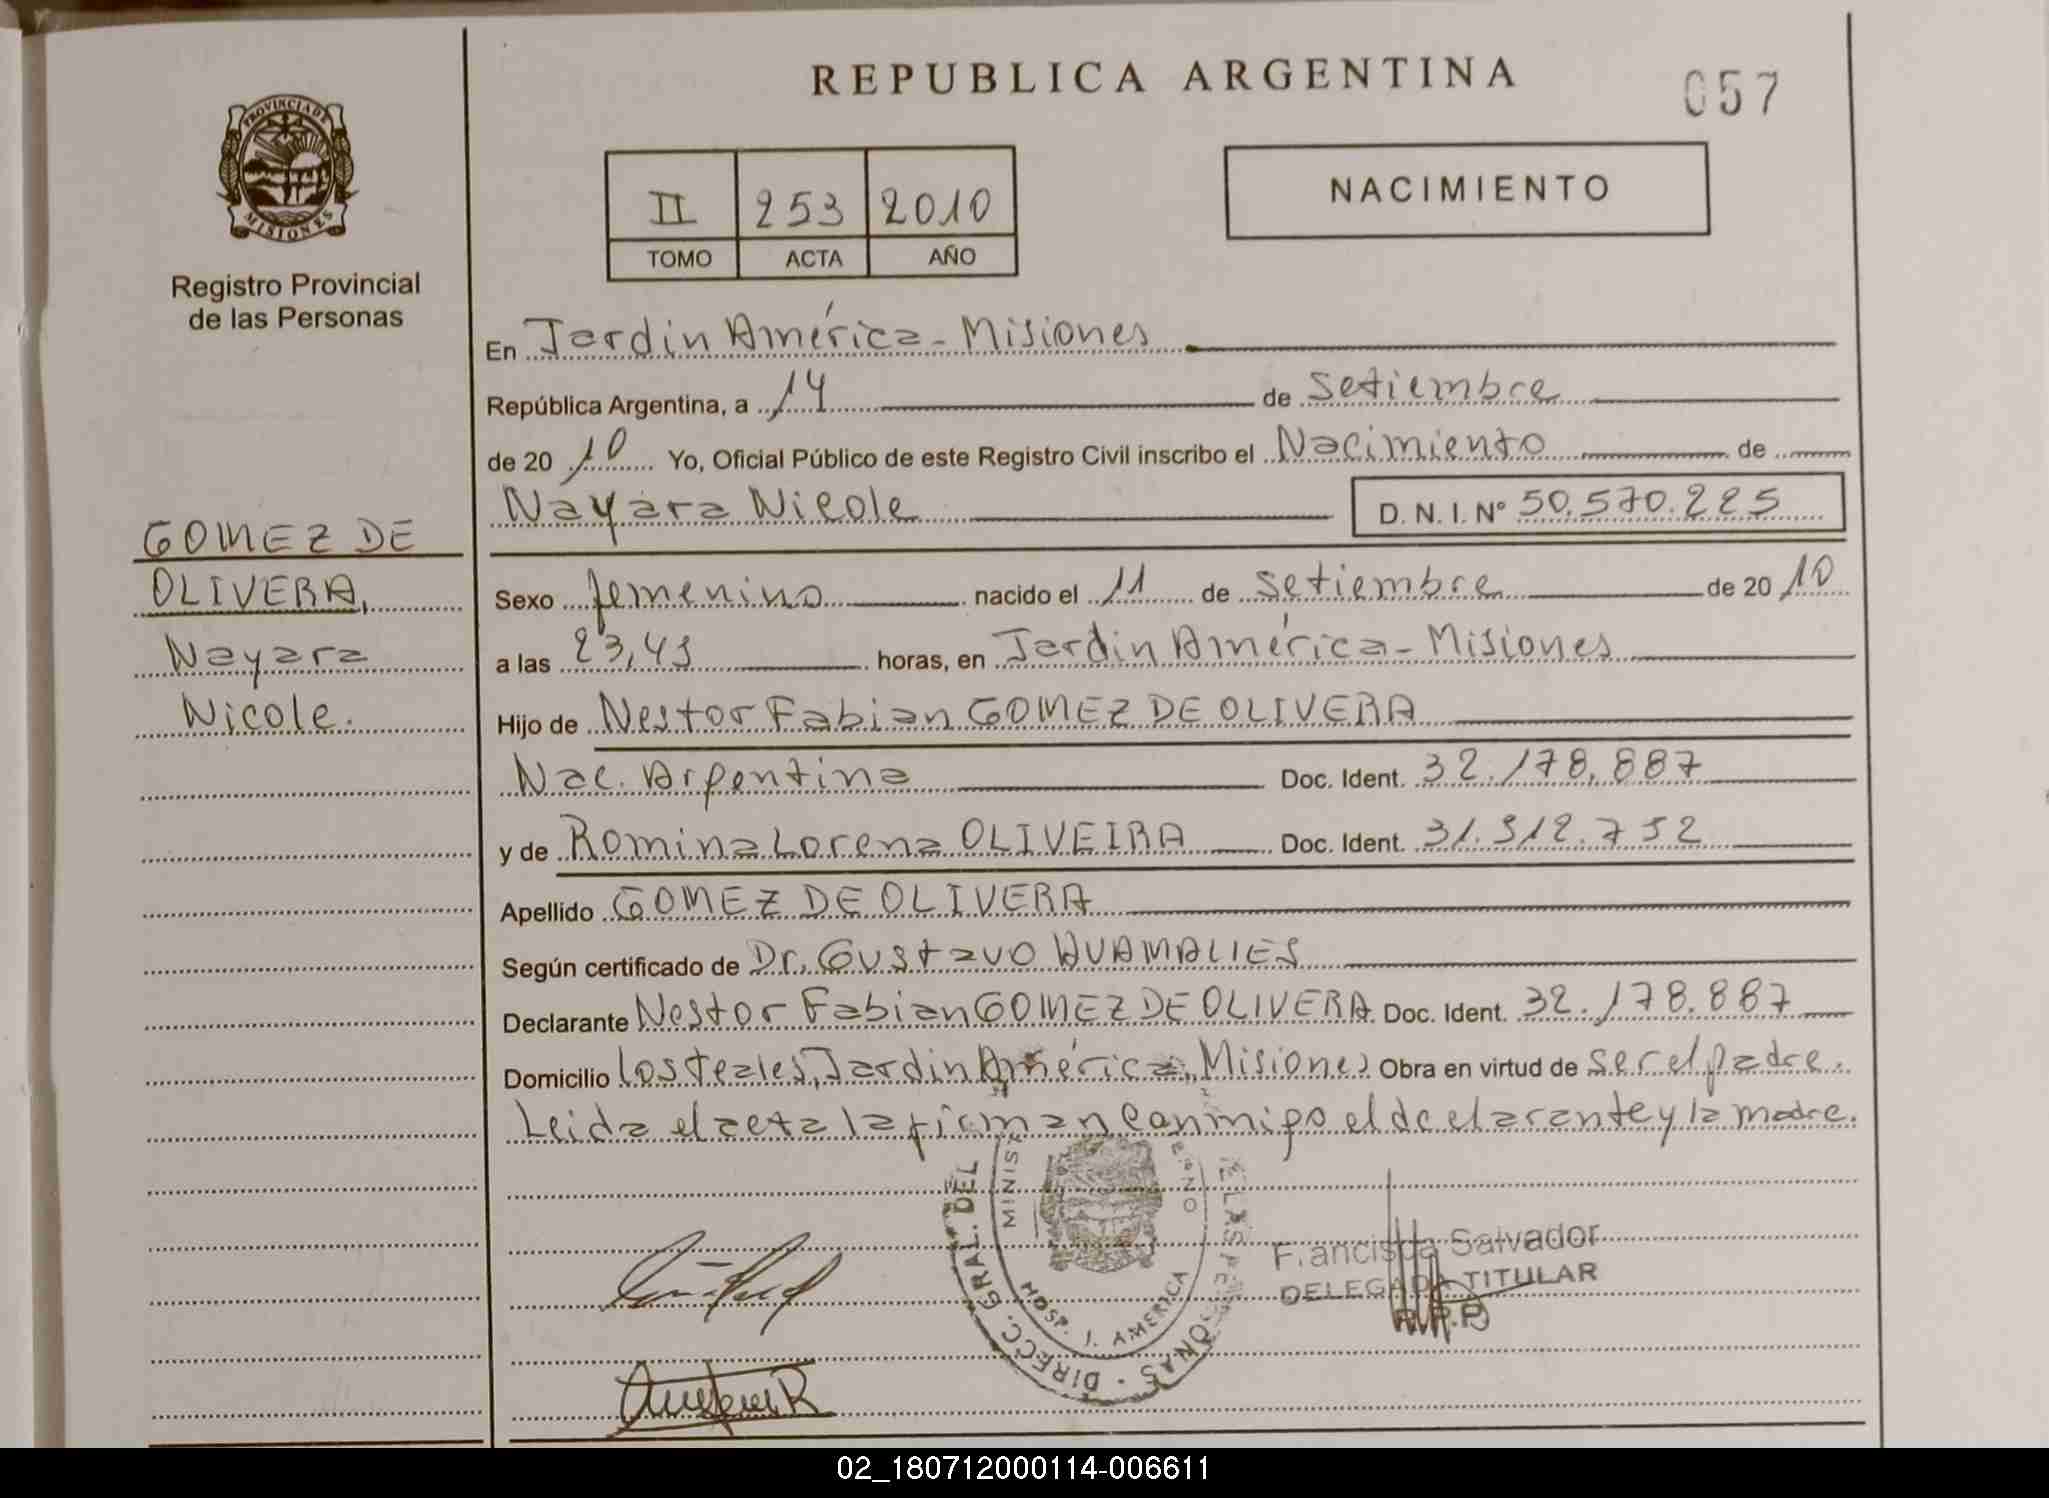 REPUBLICA ARGENTINA
057
PROVINCIA DE
MISIONES
Registro Provincial
de las Personas
II 253 2010
TOMO ACTA AÑO
NACIMIENTO
En Jardin América - Misiones
República Argentina, a 14 de Setiembre
de 2010 Yo, Oficial Público de este Registro Civil inscribo el Nacimiento de
Nayara Nicole D. N. I. Nº 50.570.225
GOMEZ DE
OLIVERA,
Nayara
Nicole.
Sexo femenino nacido el 11 de Setiembre de 2010
a las horas, en Jardin América - Misiones
Hijo de Nestor Fabian GOMEZ DE OLIVERA
Nac. Argentina Doc. Ident. 32.178.887
y de Romina Lorena OLIVEIRA Doc. Ident.
Apellido GOMEZ DE OLIVERA
Según certificado de Dr. Gustavo HUAMALIES
Declarante Nestor Fabian GOMEZ DE OLIVERA Doc. Ident. 32.178.887
Domicilio los teales, Jardin América, Misiones Obra en virtud de ser el padre.
Leida el acta la firman conmigo el declarante y la madre.
DIRECC. GRAL. DEL
HOSP. J. AMERICA
Francisca Salvador
DELEGADA TITULAR
R.P.P
02_180712000114-006611